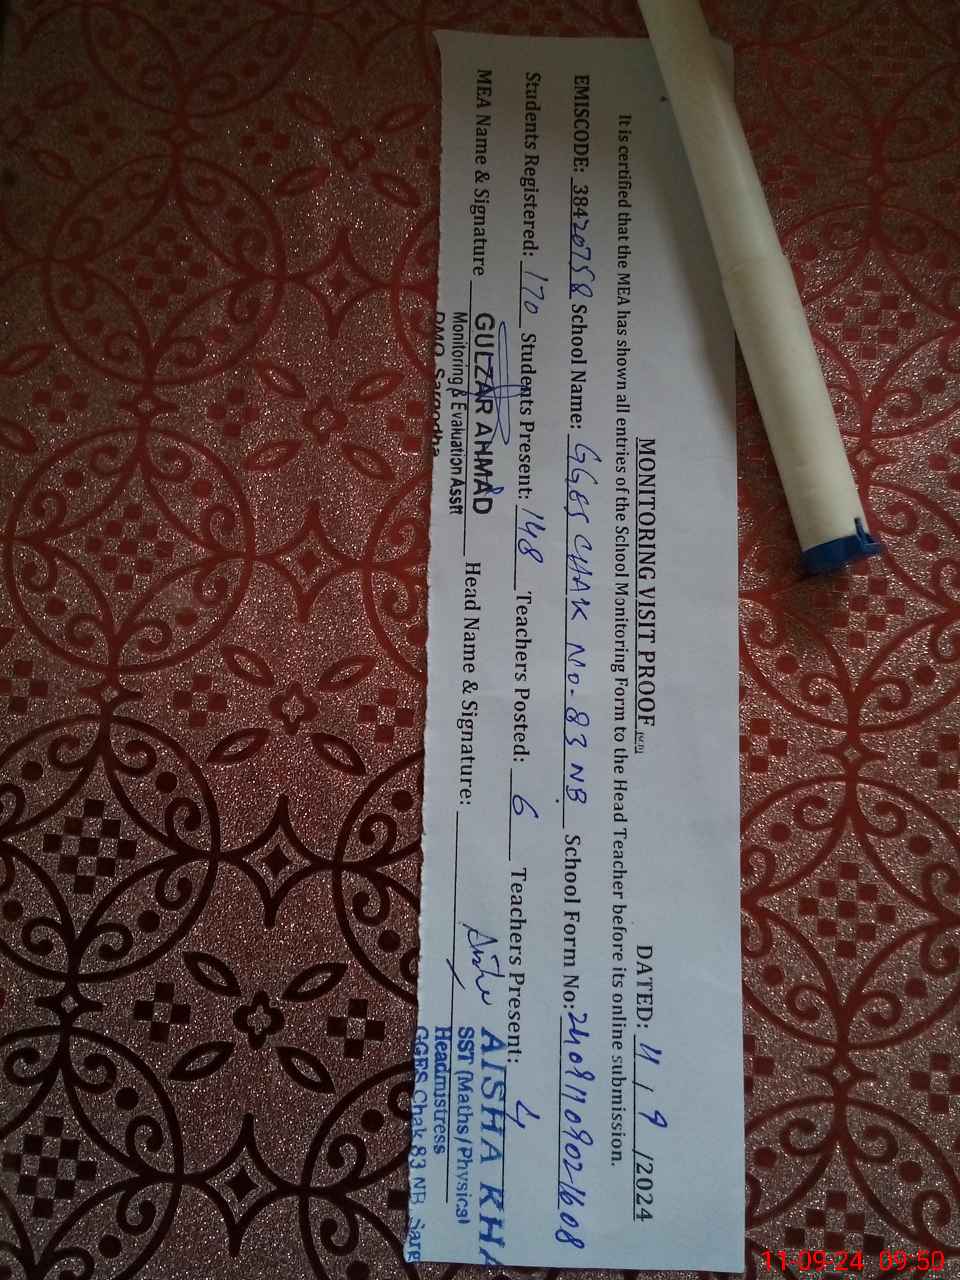 MONITORING VISIT PROOF DATED: 11 / 9 /2024
It is certified that the MEA has shown all entries of the School Monitoring Form to the Head Teacher before its online submission.
EMISCODE: 38420758 School Name: GGES CHAK NO-83 NB School Form No:
Students Registered: 170 Students Present: 148 Teachers Posted: 6 Teachers Present: 4
MEA Name & Signature GULZAR AHMAD Head Name & Signature: AISHA
Monitoring & Evaluation Asstt SST (Maths/Physics)
DMO Sargodha Headmistress
GGES Chak 83 NB, Sarg
11-09-24 09:50